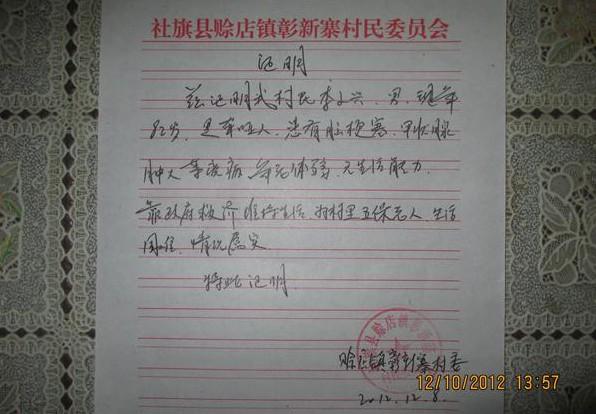 社旗县赊店镇彰新寨村民委员会
证明
兹证明我村民李文兴、男、现年
82岁,是聋哑人,患有脑梗塞,甲状腺
肿大等疾病,年老体弱,无生活能力,
靠政府救济维持生活,为村里五保老人,生活
困难,情况属实
特此证明
赊店镇彰新寨村委
2012.12.8
12/10/2012 13:57